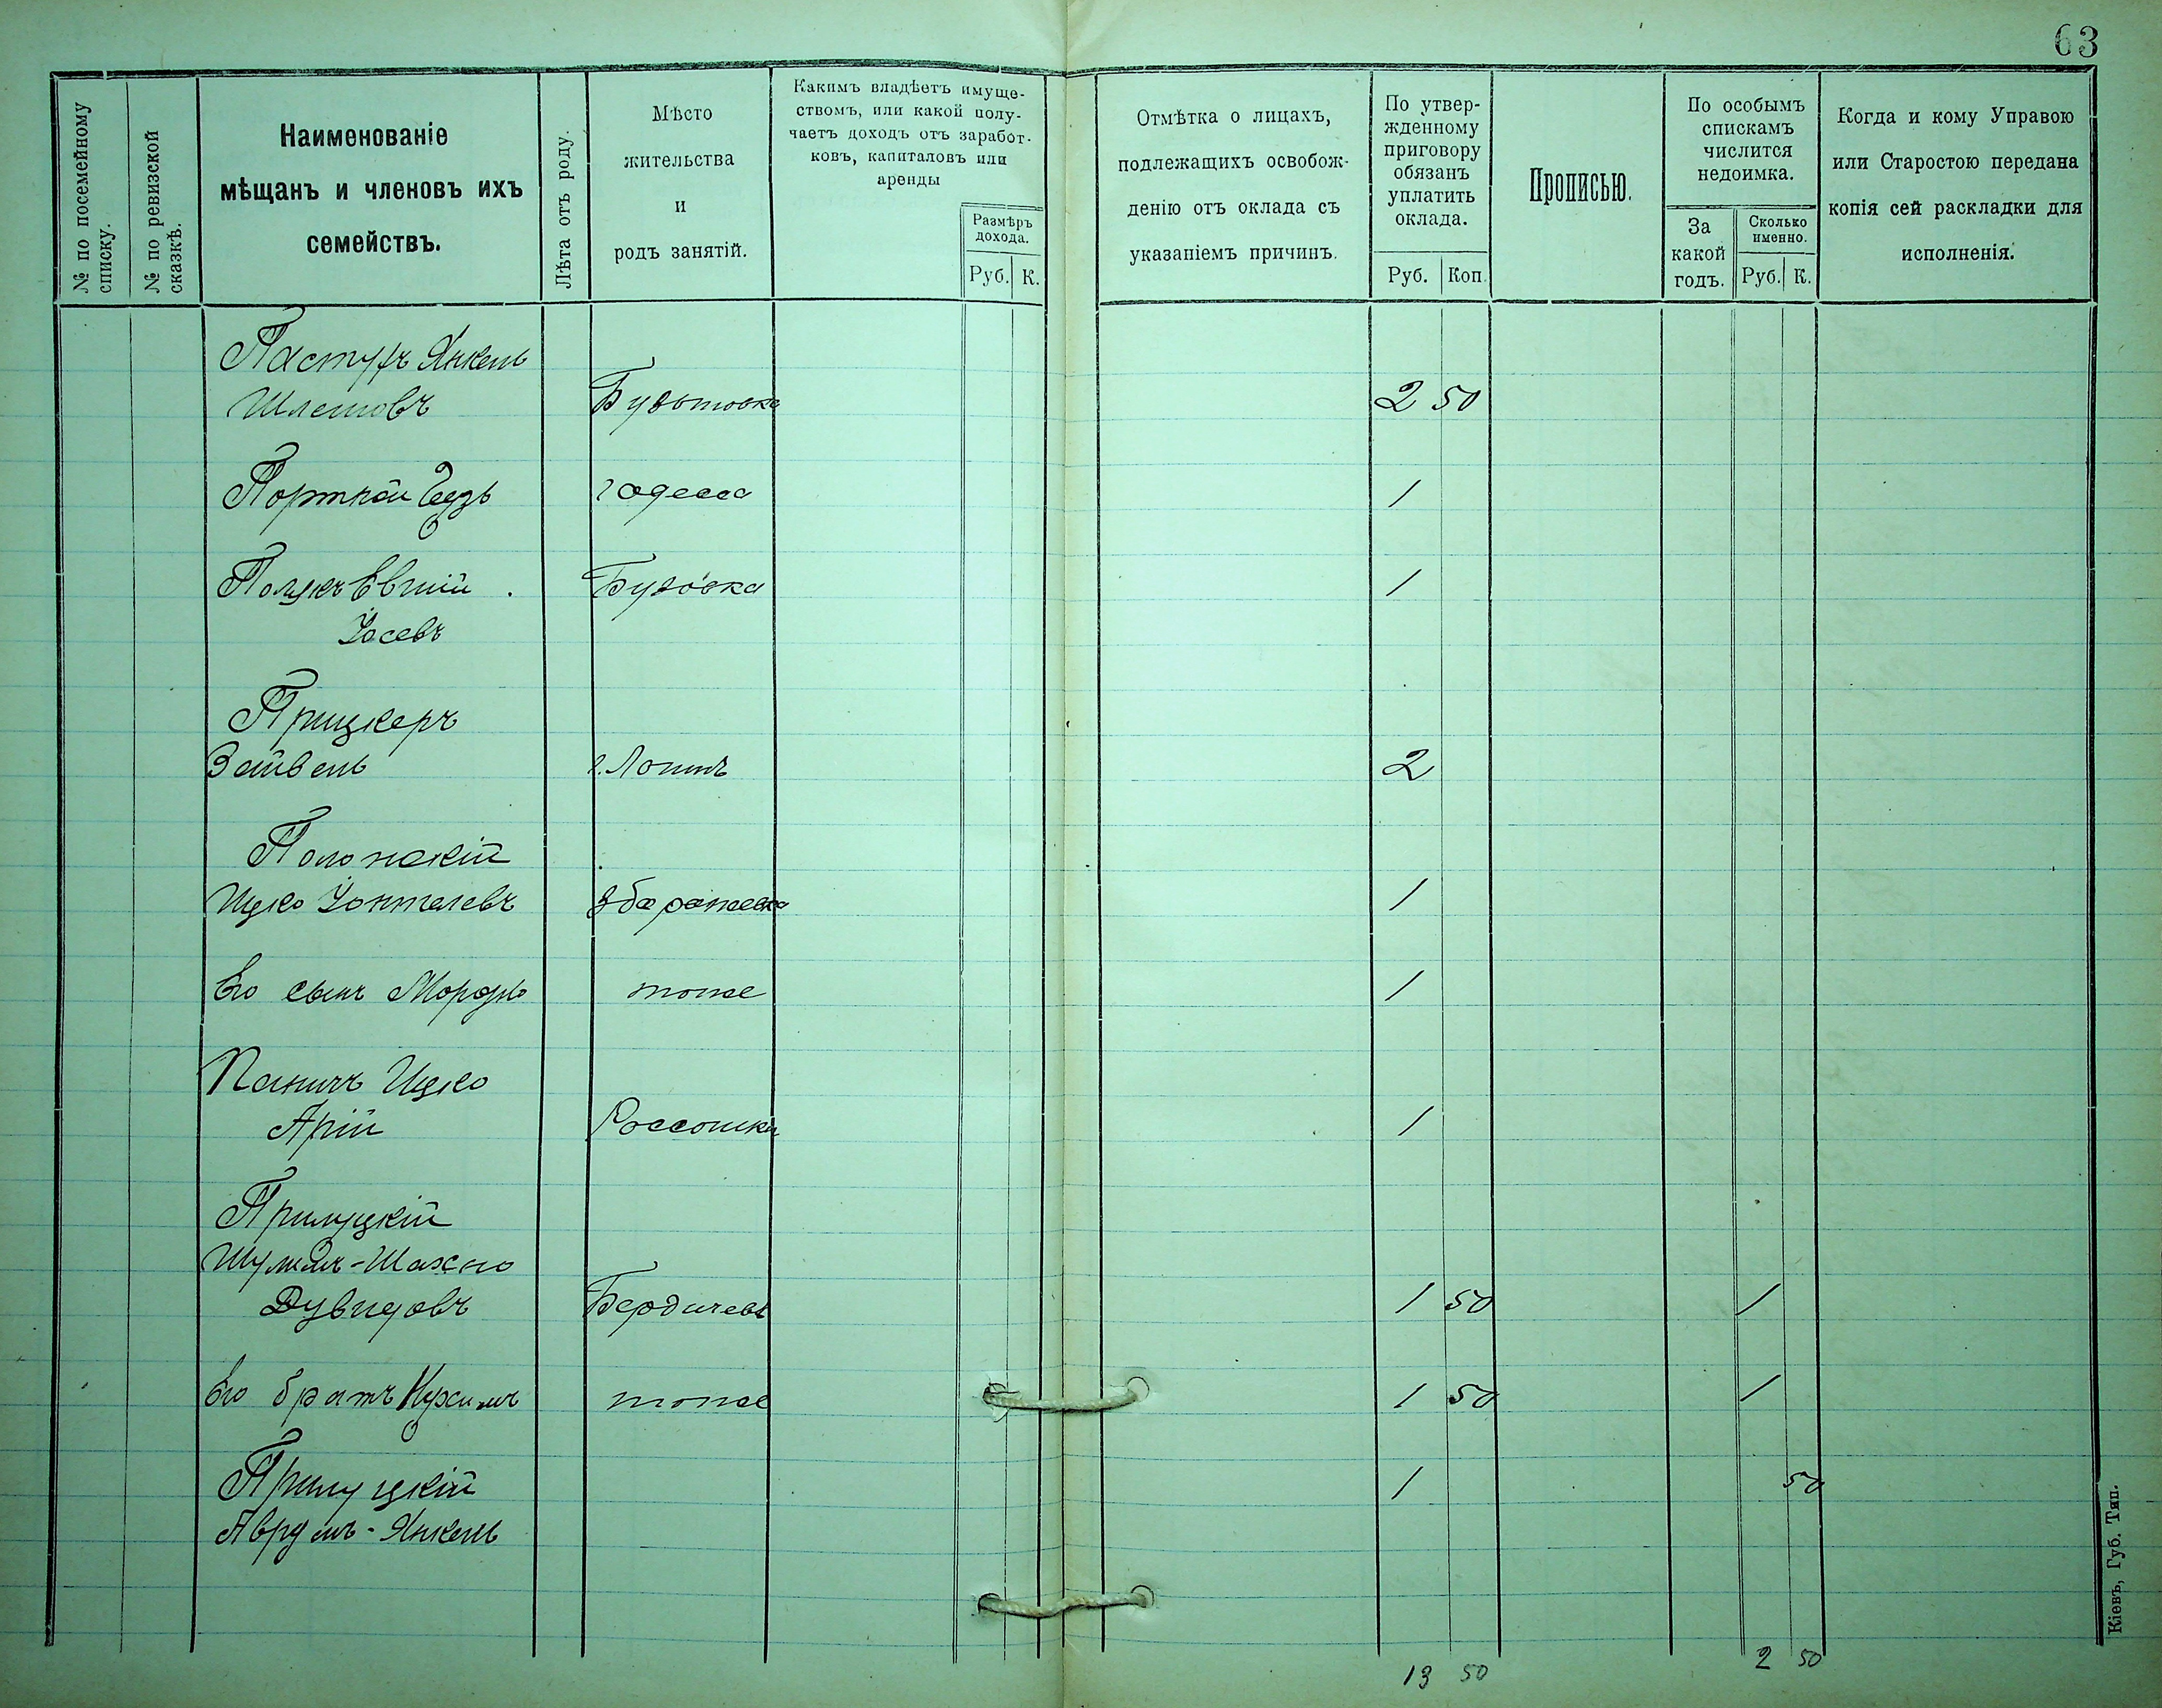 63
№ по посемейному
списку.
№ по ревизской
сказкѣ.
Наименованіе
мѣщанъ и членовъ ихъ
семействъ.
Лѣта отъ роду.
Мѣсто
жительства
и
родъ занятій.
Какимъ владѣетъ имуще-
ствомъ, или какой полу-
чаетъ доходъ отъ заработ-
ковъ, капиталовъ или
аренды
Размѣръ
дохода.
Руб. К.
Отмѣтка о лицахъ,
подлежащихъ освобож-
денію отъ оклада съ
указаніемъ причинъ.
По утвер-
жденному
приговору
обязанъ
уплатить
оклада.
Руб. Коп.
Прописью.
По особымъ
спискамъ
числится
недоимка.
За
какой
годъ.
Сколько
именно.
Руб. К.
Когда и кому Управою
или Старостою передана
копія сей раскладки для
исполненія.
Пастухъ Янкель
Шлемовъ 2 50
Порткой г Одесса 1
Бузовка 1
Іосевъ
Прицкеръ
Зейвель 2
Полонскій
Ицко 1
Его сынъ Мордко тоже 1
Паничъ Ицко
Арій Россошки 1
Прилуцкій
Шулимъ-Шахно
Дувидовъ Бердичевъ 1 50 1
Его братъ Нухимъ тоже 1 50 1
Прилуцкій 1 50
Аврумъ-Янкель
13 50 2 50
Кіевъ, Губ. Тип.